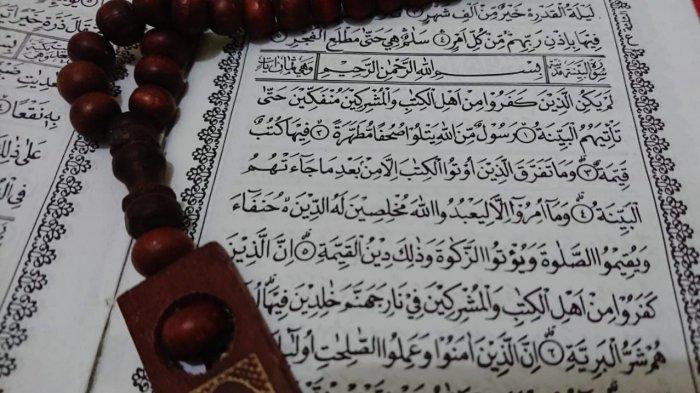 لَيْلَةُ الْقَدْرِ ەۙ خَيْرٌ مِّنْ اَلْفِ شَهْرٍ
فِيْهَا بِاِذْنِ رَبِّهِمْ مِّنْ كُلِّ اَمْرٍ ٤ سَلٰمٌ هِيَ حَتّٰى مَطْلَعِ الْفَجْرِ
سُوْرَةُ الْبَيِّنَةِ مَدَنِيَّة بِسْمِ اللّٰهِ الرَّحْمٰنِ الرَّحِيْمِ وَهِيَ ثَمَانُ اٰيَات
لَمْ يَكُنِ الَّذِيْنَ كَفَرُوْا مِنْ اَهْلِ الْكِتٰبِ وَالْمُشْرِكِيْنَ مُنْفَكِّيْنَ حَتّٰى
تَأْتِيَهُمُ الْبَيِّنَةُ ١ رَسُوْلٌ مِّنَ اللّٰهِ يَتْلُوْا صُحُفًا مُّطَهَّرَةً ٢ فِيْهَا كُتُبٌ
قَيِّمَةٌ ٣ وَمَا تَفَرَّقَ الَّذِيْنَ اُوْتُوا الْكِتٰبَ اِلَّا مِنْ بَعْدِ مَا جَآءَتْهُمُ
الْبَيِّنَةُ ٤ وَمَآ اُمِرُوْٓا اِلَّا لِيَعْبُدُوا اللّٰهَ مُخْلِصِيْنَ لَهُ الدِّيْنَ حُنَفَآءَ
وَيُقِيْمُوا الصَّلٰوةَ وَيُؤْتُوا الزَّكٰوةَ وَذٰلِكَ دِيْنُ الْقَيِّمَةِ ٥ اِنَّ الَّذِيْنَ
كَفَرُوْا مِنْ اَهْلِ الْكِتٰبِ وَالْمُشْرِكِيْنَ فِيْ نَارِ جَهَنَّمَ خٰلِدِيْنَ فِيْهَا
هُمْ شَرُّ الْبَرِيَّةِ ٦ اِنَّ الَّذِيْنَ اٰمَنُوْا وَعَمِلُوا الصّٰلِحٰتِ